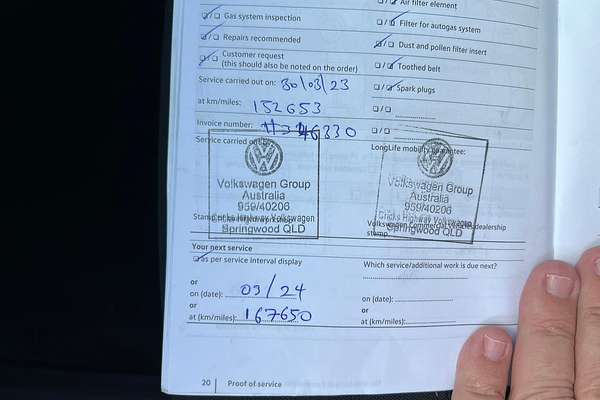 Air filter element
Gas system inspection
Filter for autogas system
Repairs recommended
Dust and pollen filter insert
Customer request
(this should also be noted on the order)
Toothed belt
Service carried out on: 30/03/23
Spark plugs
at km/miles: 152653
Invoice number:
Service carried out by:
LongLife mobility guarantee:
Volkswagen Group
Australia
959/40206
Cricks Highway Volkswagen
Springwood QLD
Volkswagen Group
Australia
959/40206
Cricks Highway Volkswagen
Springwood QLD
Volkswagen Commercial Vehicles dealership
stamp
Your next service
as per service interval display
Which service/additional work is due next?
or
on (date): 03/24
on (date):
or
or
at (km/miles): 167650
at (km/miles):
20 Proof of service